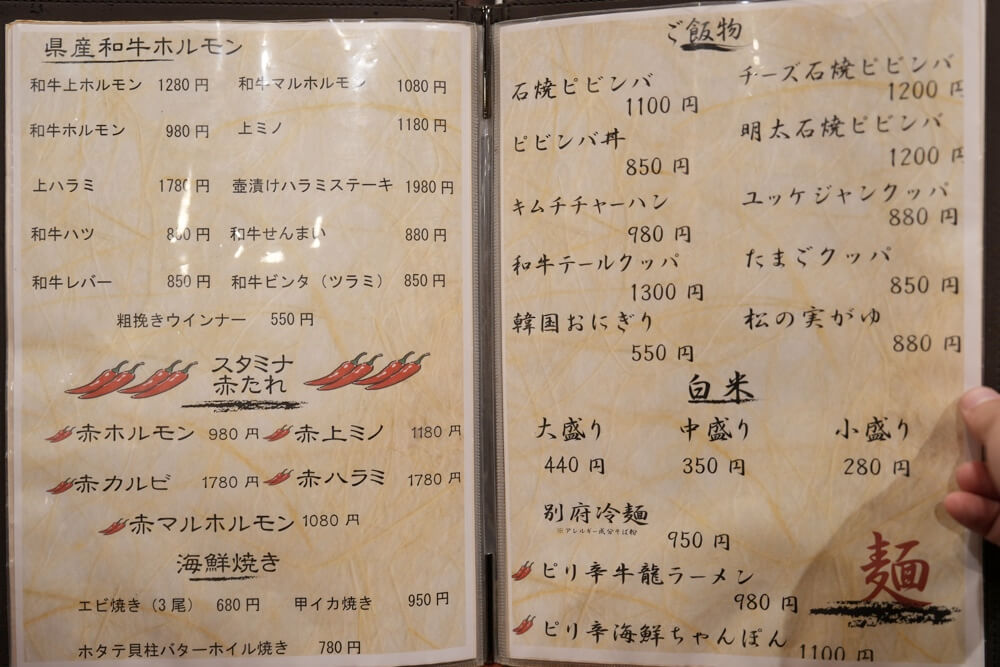 県産和牛ホルモン
和牛上ホルモン 1280円 和牛マルホルモン 1080円
和牛ホルモン 980円 上ミノ 1180円
上ハラミ 1780円 壺漬けハラミステーキ 1980円
和牛ハツ 円 和牛せんまい 880円
和牛レバー 850円 和牛ビンタ（ツラミ） 850円
粗挽きウインナー 550円
スタミナ
赤たれ
赤ホルモン 980円 赤上ミノ 1180円
赤カルビ 1780円 赤ハラミ 1780円
赤マルホルモン 1080円
海鮮焼き
エビ焼き（3尾） 680円 甲イカ焼き 950円
ホタテ貝柱バターホイル焼き 780円
ご飯物
石焼ピビンバ 1100円 チーズ石焼ピビンバ 1200円
ピビンバ丼 850円 明太石焼ピビンバ 1200円
キムチチャーハン 980円 ユッケジャンクッパ 880円
和牛テールクッパ 1300円 たまごクッパ 850円
韓国おにぎり 550円 松の実がゆ 880円
白米
大盛り 中盛り 小盛り
440円 350円 280円
別府冷麺
※アレルギー成分そば粉
950円
麺
ピリ辛牛龍ラーメン
980円
ピリ辛海鮮ちゃんぽん
1100円